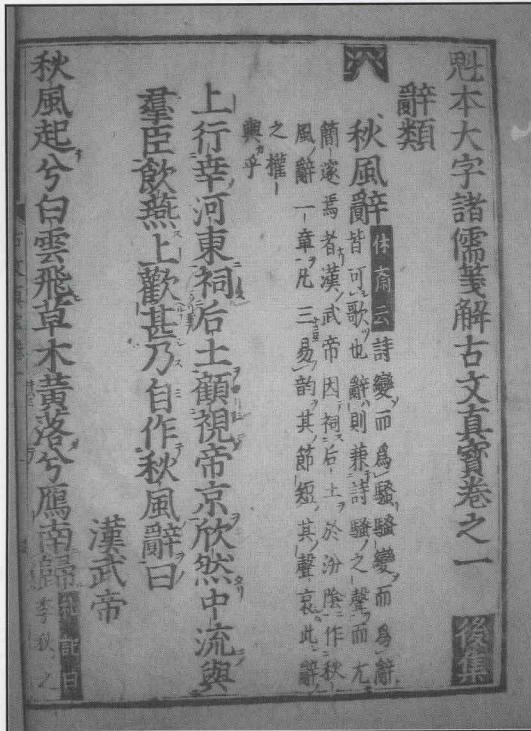 魁本大字諸儒箋解古文真寶卷之一 後集
辭類
秋風辭 休齋云詩變而爲騷騷變而爲辭
皆可歌也辭則兼詩騷之聲而尤
簡邃焉者漢武帝因祠后土於汾陰作秋
風辭一章凡三易韵其節短其聲哀此辭
之權
輿乎
上行幸河東祠后土顧視帝京欣然中流與
羣臣飲燕上歡甚乃自作秋風辭曰
漢武帝
秋風起兮白雲飛草木黃落兮鴈南歸 記曰季秋之